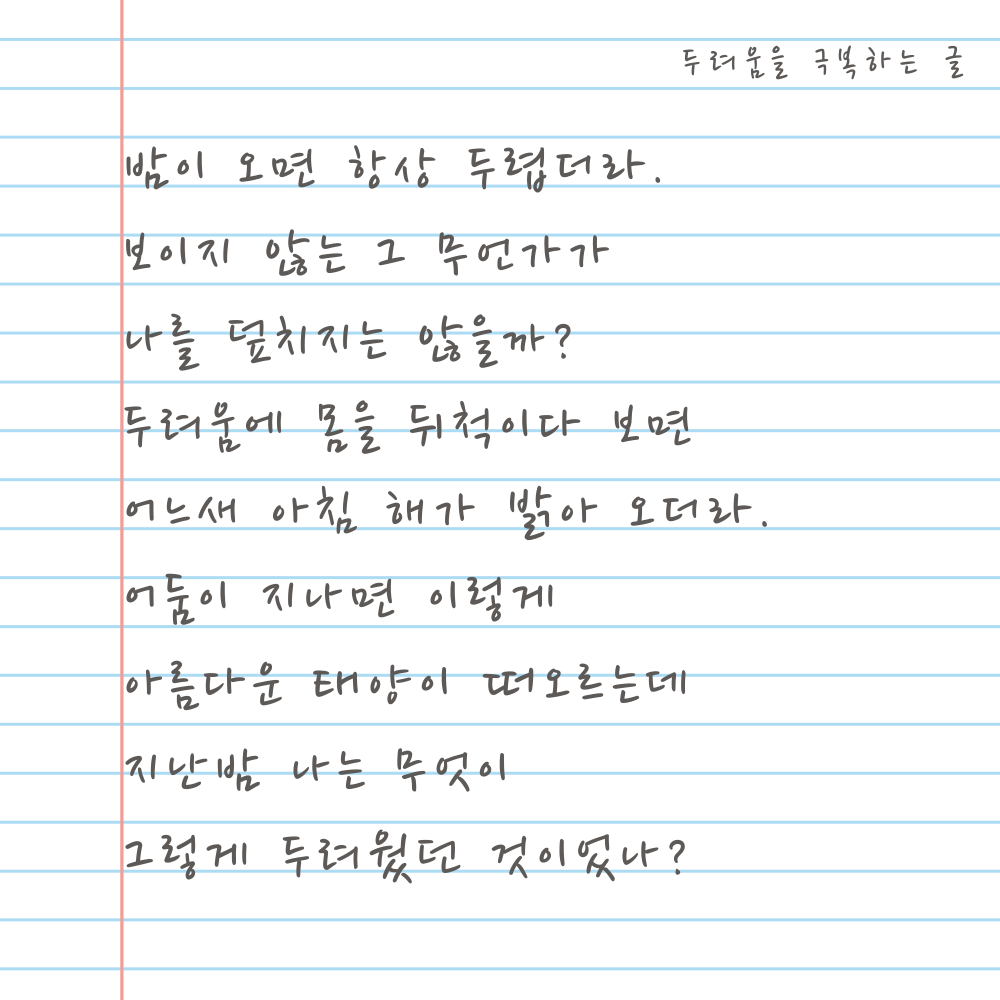 두려움을 극복하는 글
밤이 오면 항상 두렵더라.
보이지 않는 그 무언가가
나를 덮치지는 않을까?
두려움에 몸을 뒤척이다 보면
어느새 아침 해가 밝아 오더라.
어둠이 지나면 이렇게
아름다운 태양이 떠오르는데
지난밤 나는 무엇이
그렇게 두려웠던 것이었나?